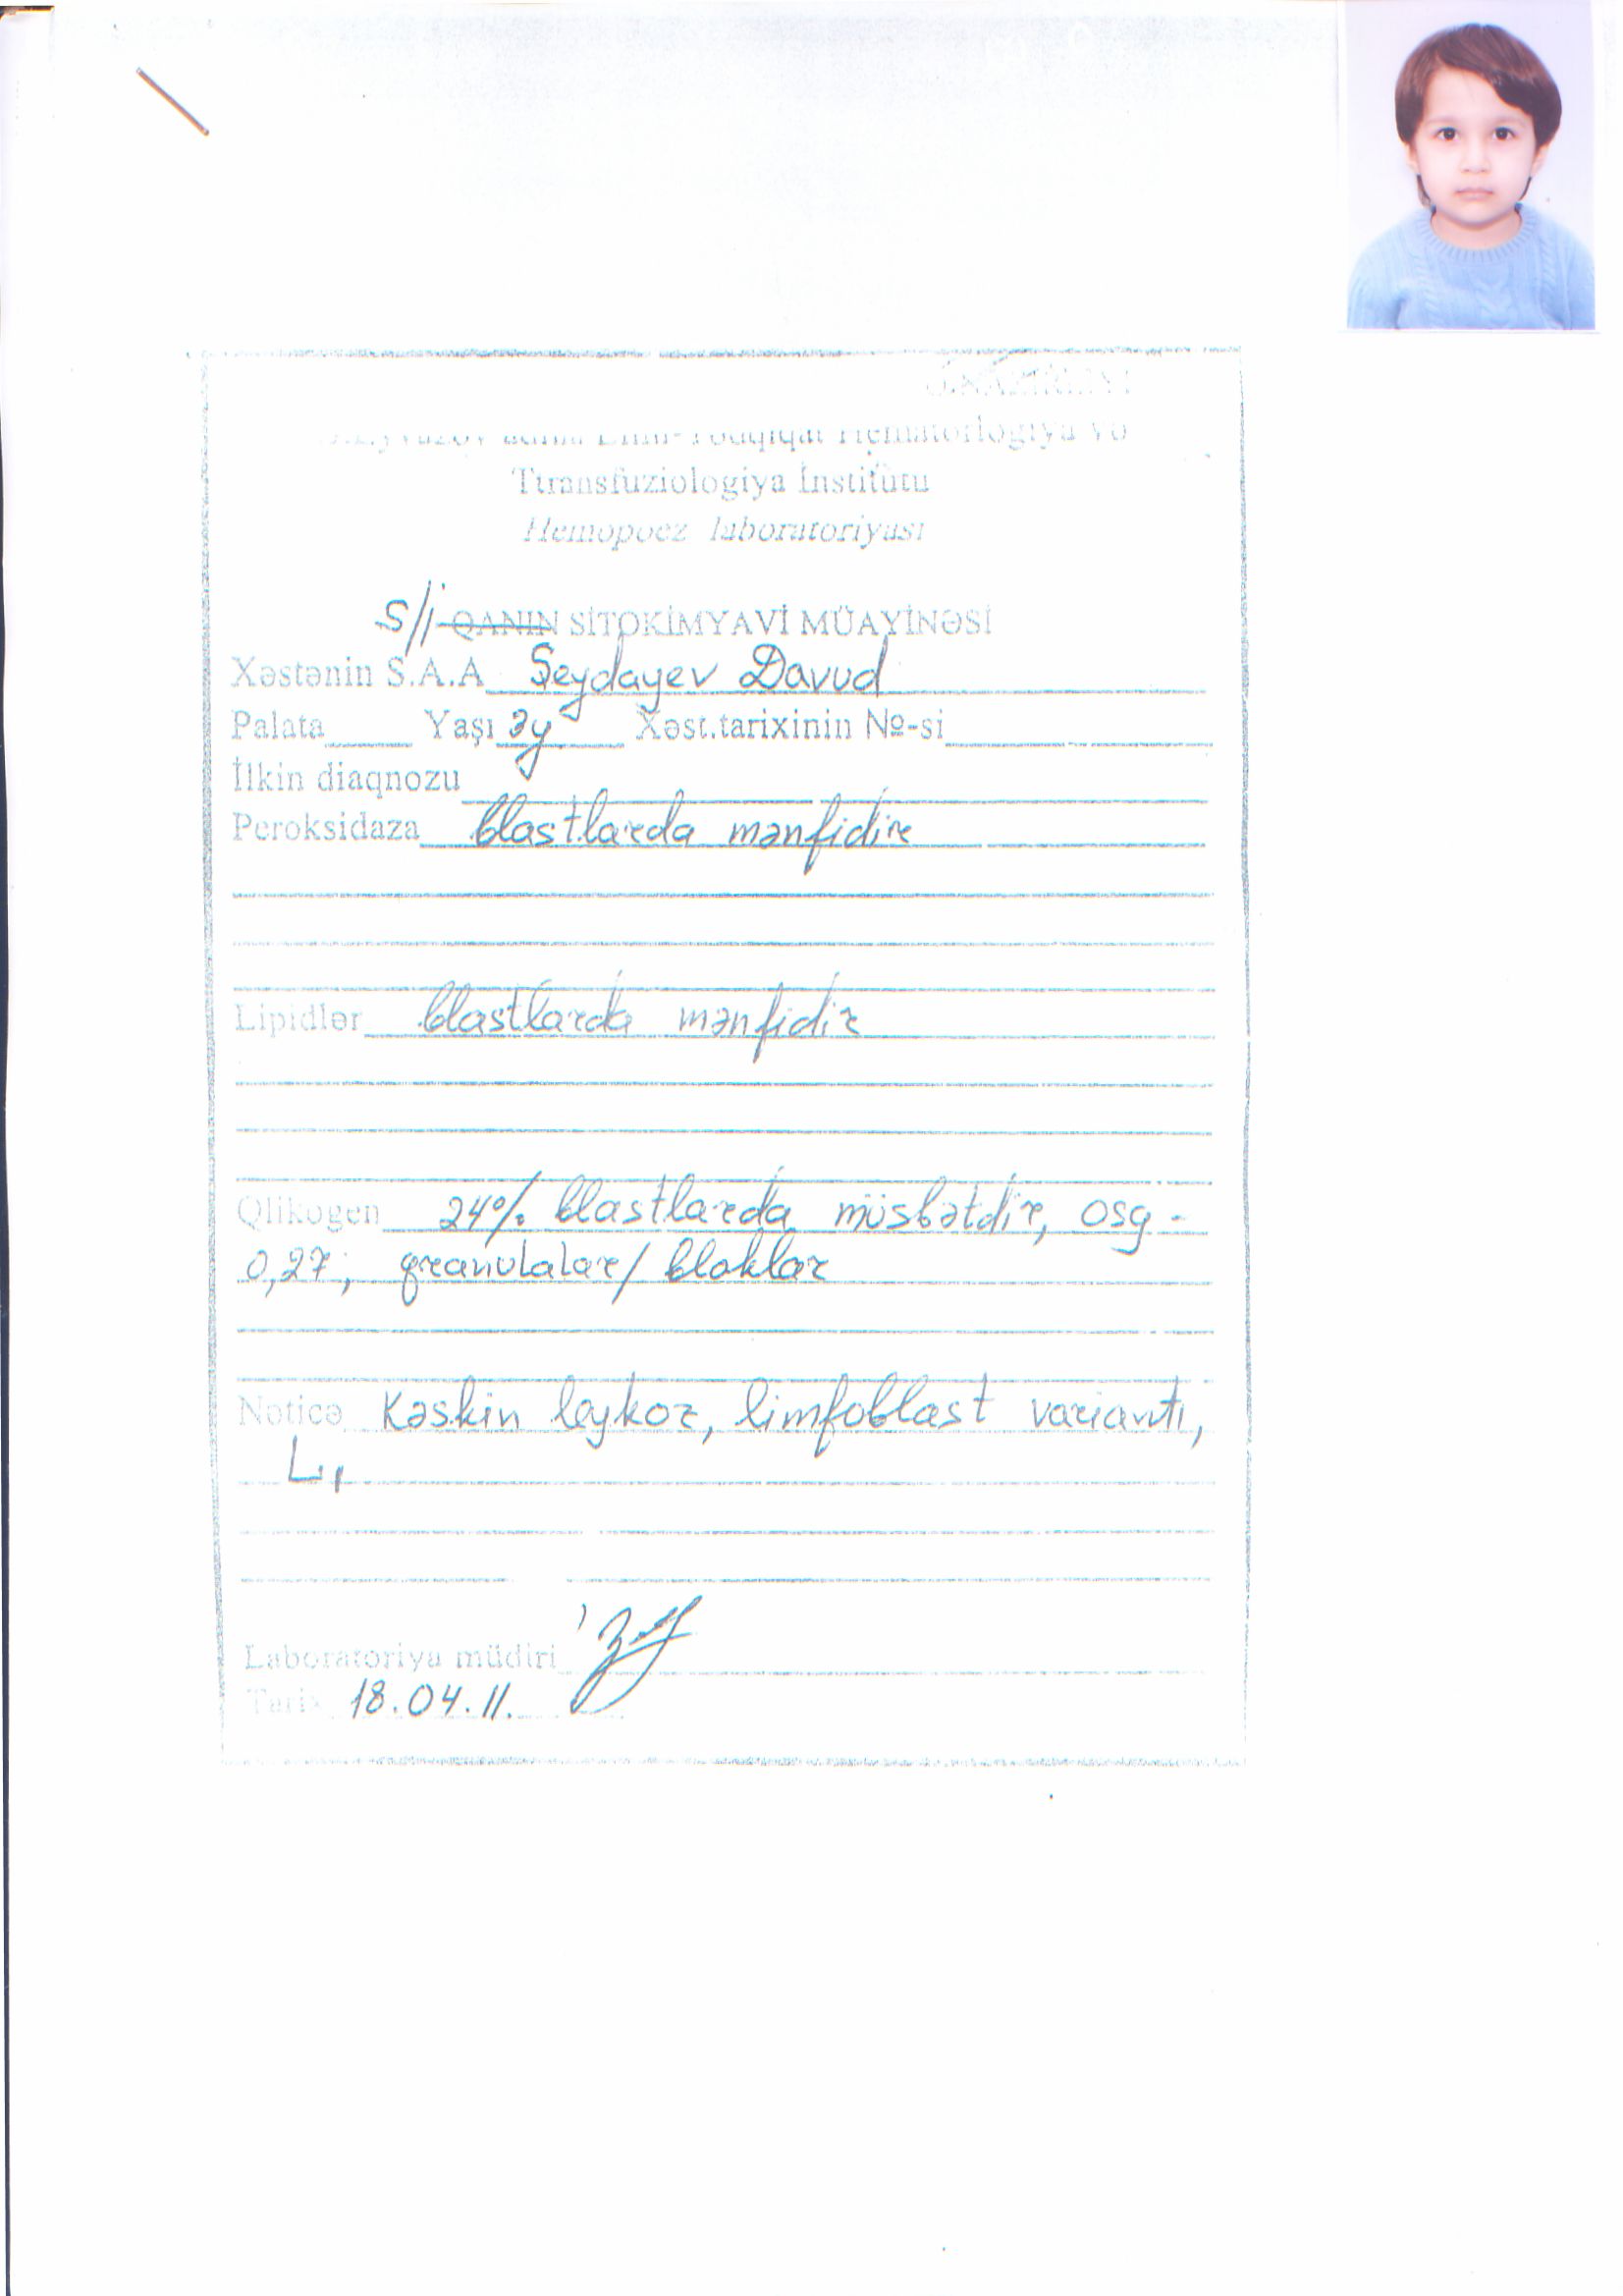 Hematorlogiya və
Ttransfuziologiya İnstitutu
Hemopoez laboratoriyası
S/i QANIN SİTOKİMYAVİ MÜAYİNƏSİ
Xəstənin S.A.A Şeydayev Davud
Palata Yaşı 3y Xəst.tarixinin №-si
İlkin diaqnozu
Peroksidaza blastlarda mənfidir
Lipidlər blastlarda mənfidir
Qlikogen 24% blastlarda müsbətdir, OSG -
0,27; qranulalar/bloklar
Nəticə Kəskin leykoz, limfoblast variantı,
L1
Laboratoriya müdiri
Tarix 18.04.11.